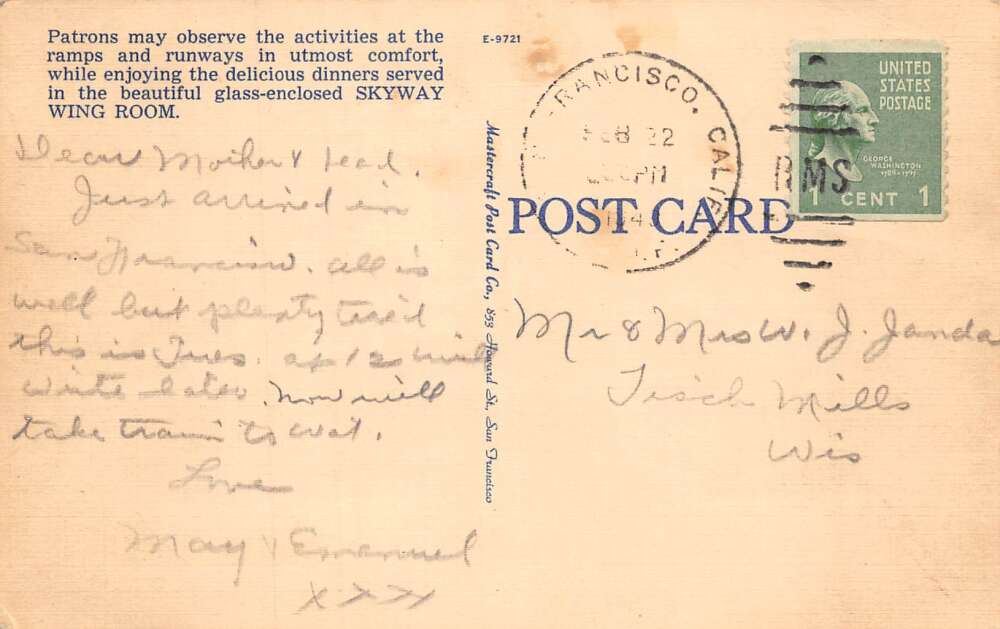 Patrons may observe the activities at the
ramps and runways in utmost comfort,
while enjoying the delicious dinners served
in the beautiful glass-enclosed SKYWAY
WING ROOM.
E-9721
Dear Mother &
Just arrived in
San Francisco. All is
well but plenty tired
this is Tues. at 12 will
write later. Now will
take train to
Love
May & Emanuel
XXXX
Mastercraft Post Card Co., 853 Howard St., San Francisco
FRANCISCO, CALIF.
FEB 22
PM
194
RMS
UNITED
STATES
POSTAGE
GEORGE
WASHINGTON
1789-1797
1 CENT 1
POST CARD
Mr & Mrs W. J. Janda
Tisch Mills
Wis